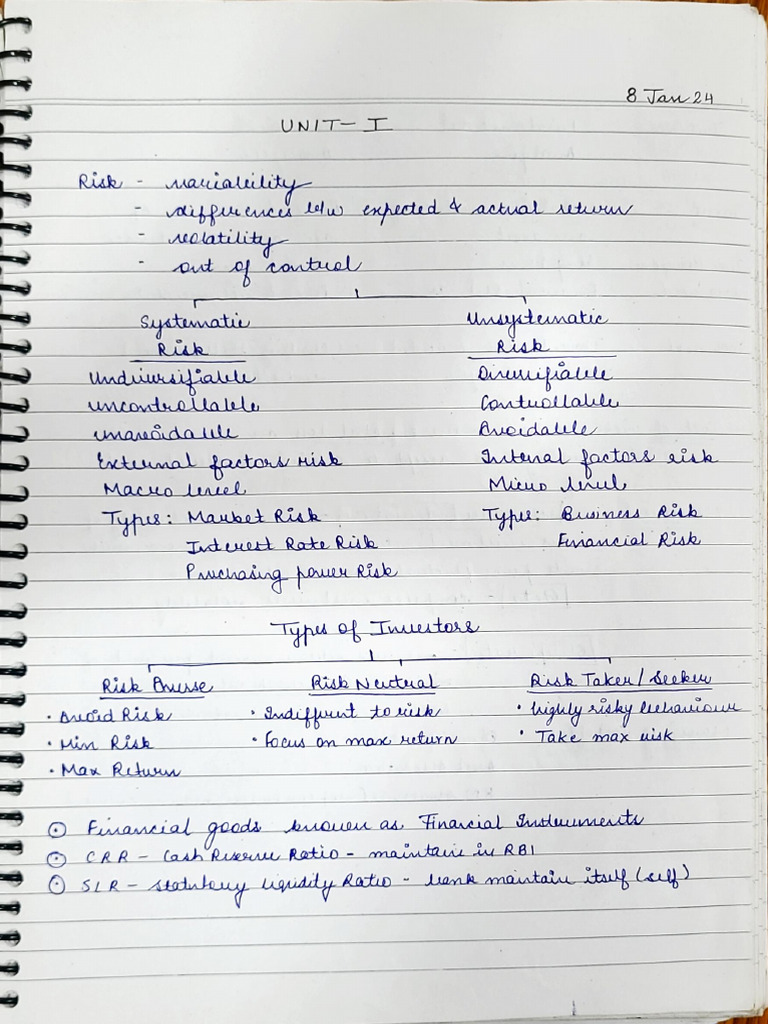 8 Jan 24
UNIT-I
Risk - variability
- differences b/w expected & actual return
- volatility
- out of control
Systematic Risk
Undiversifiable
uncontrollable
unavoidable
External factors risk
Macro level
Types: Market Risk
Interest Rate Risk
Purchasing power Risk
Unsystematic Risk
Diversifiable
Controllable
Avoidable
Internal factors risk
Micro level
Types: Business Risk
Financial Risk
Types of Investors
Risk Averse
• Avoid Risk
• Min Risk
• Max Return
Risk Neutral
• Indiffrent to risk
• Focus on max return
Risk Taker/Seeker
• highly risky behaviour
• Take max risk
⊙ Financial goods known as Financial Instruments
⊙ CRR - Cash Reserve Ratio - maintain in RBI
⊙ SLR - statutory liquidity Ratio - bank maintain itself (self)